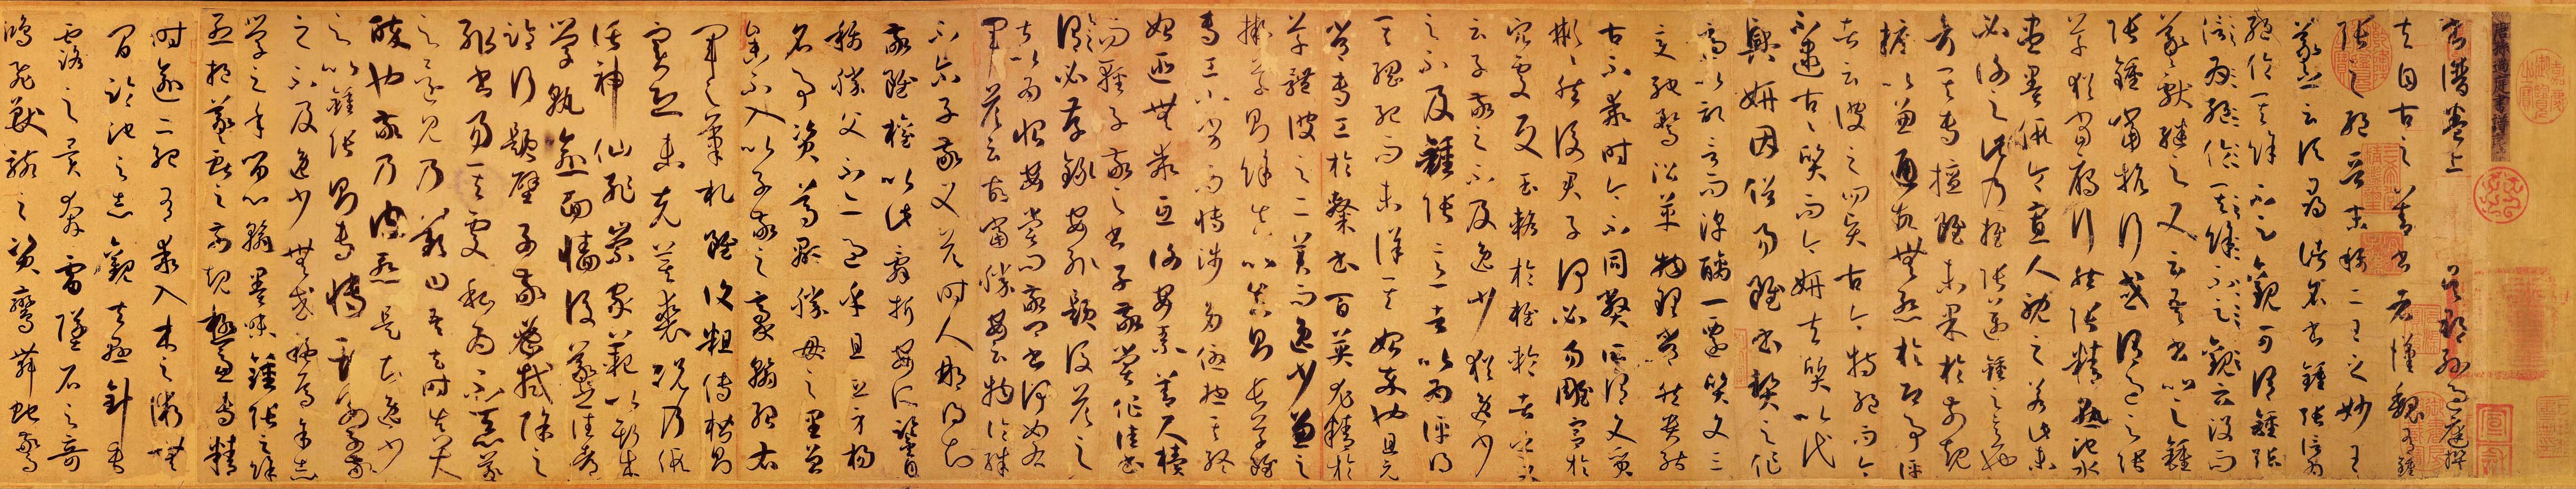 唐孫過庭書譜
書譜卷上　吳郡孫過庭撰
夫自古之善書者漢魏有鍾
張之絕晉末稱二王之妙王
羲之云頃尋諸名書鍾張信為
絕倫其餘不足觀可謂鍾張
云沒而
羲獻繼之又云吾書比之鍾
張鍾當抗行或謂過之張
草猶當雁行然張精熟池水
盡墨假令寡人耽之若此未
必謝之此乃推張邁鍾之意也
考其專擅雖未果於前規
摭以兼通故無慚於即事評
者云彼之四賢古今特絕而今
不逮古古質而今妍夫質以代
興妍因俗易雖書契之作
適以記言而淳醨一遷質文三
變馳騖沿革物理常然貴能
古不乖時今不同弊所謂文質
彬彬然後君子何必易雕宮於
穴處反玉輅於椎輪者乎又
云子敬之不及逸少猶逸少
之不及鍾張意者以為評得
其綱紀而未詳其始卒也且元
常專工於隸書百英尤精於
草體彼之二美而逸少兼之
擬草則餘真比真則長草雖
專工小劣而博涉多優總其終
始匪無乖互謝安素善尺牘
而輕子敬之書子敬嘗作佳書與之
謂必存錄安輒題後答之
甚以為恨安嘗問敬卿書何如右
軍答云故當勝安云物論殊
不爾子敬又答時人那得知
敬雖權以此辭折安所鑒自
稱勝父不亦過乎且立身揚
名事資尊顯勝母之里曾
參不入以子敬之豪翰紹右
軍之筆札雖復粗傳楷則
實恐未克箕裘況乃假
託神仙恥崇家範以斯成
學孰愈面牆後羲之往都
臨行題壁子敬密拭除之
輒書易其處私為不惡羲
之還見乃歎曰吾去時真大
醉也敬乃內慚是知逸少
之比鍾張則專博斯別子敬
之不及逸少無或疑焉余志
學之年留心翰墨味鍾張之餘
烈挹羲獻之前規極慮專精
時逾二紀有乖入木之術無
間臨池之志觀夫懸針垂
露之異奔雷墜石之奇
鴻飛獸駭之資鸞舞蛇驚